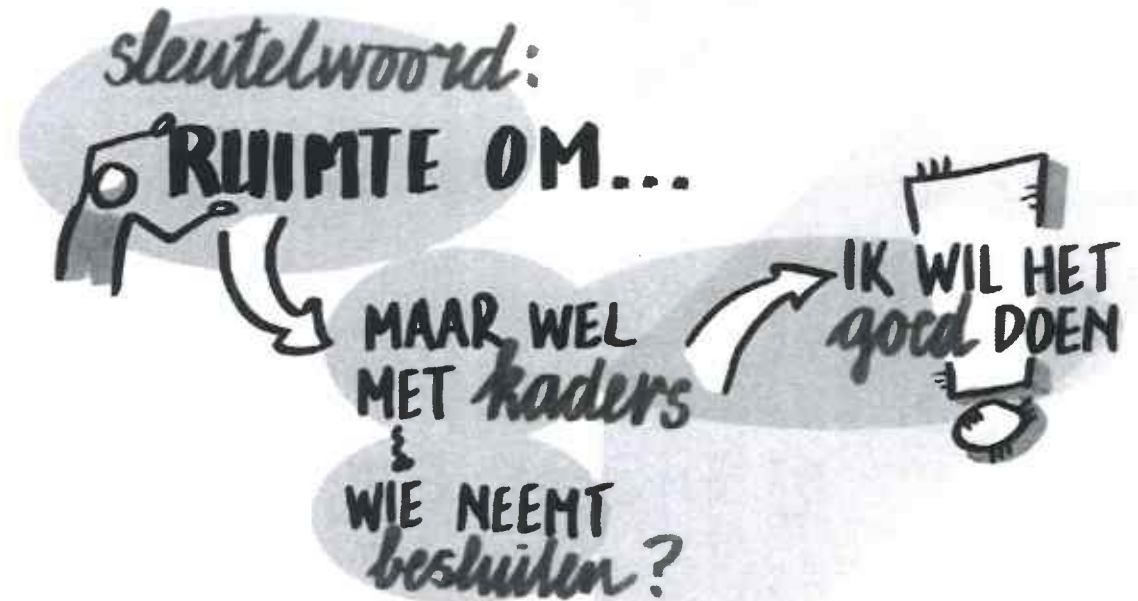 sleutelwoord:
RUIMTE OM...
MAAR WEL
MET kaders
&
WIE NEEMT
besluiten?
IK WIL HET
goed DOEN